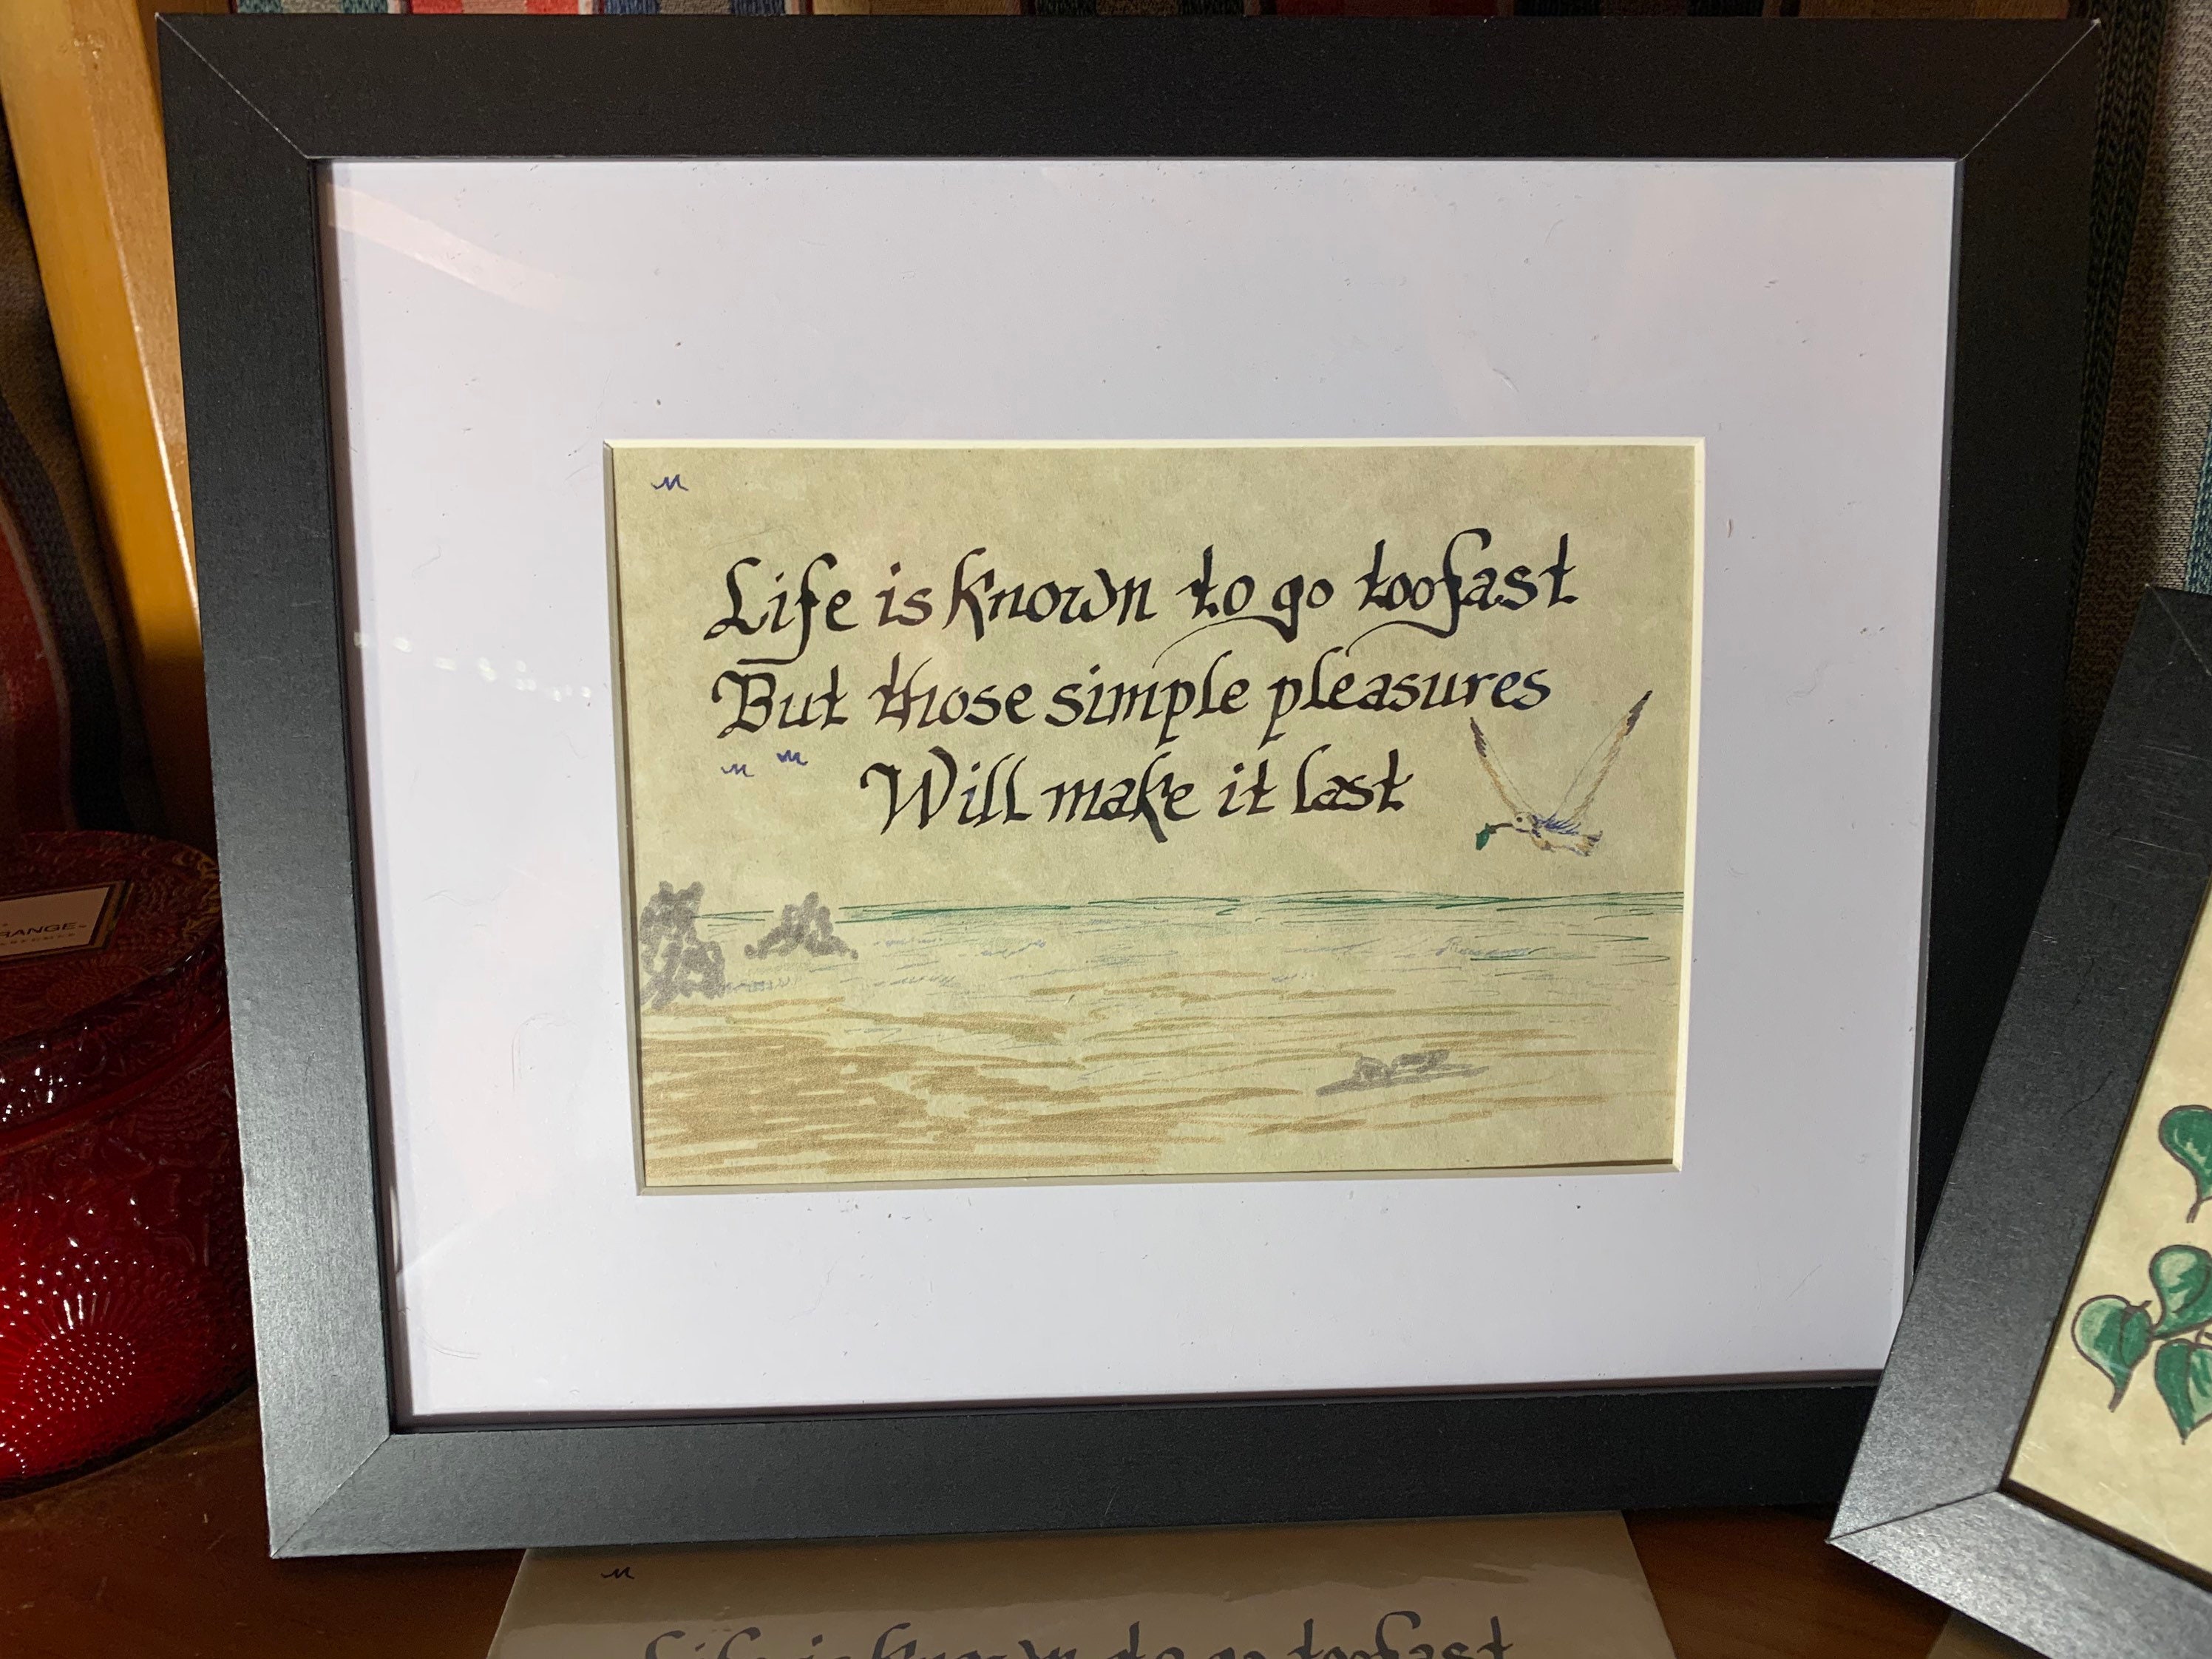 Life is known to go too fast
But those simple pleasures
Will make it last
RANGE
Life is known to go too fast